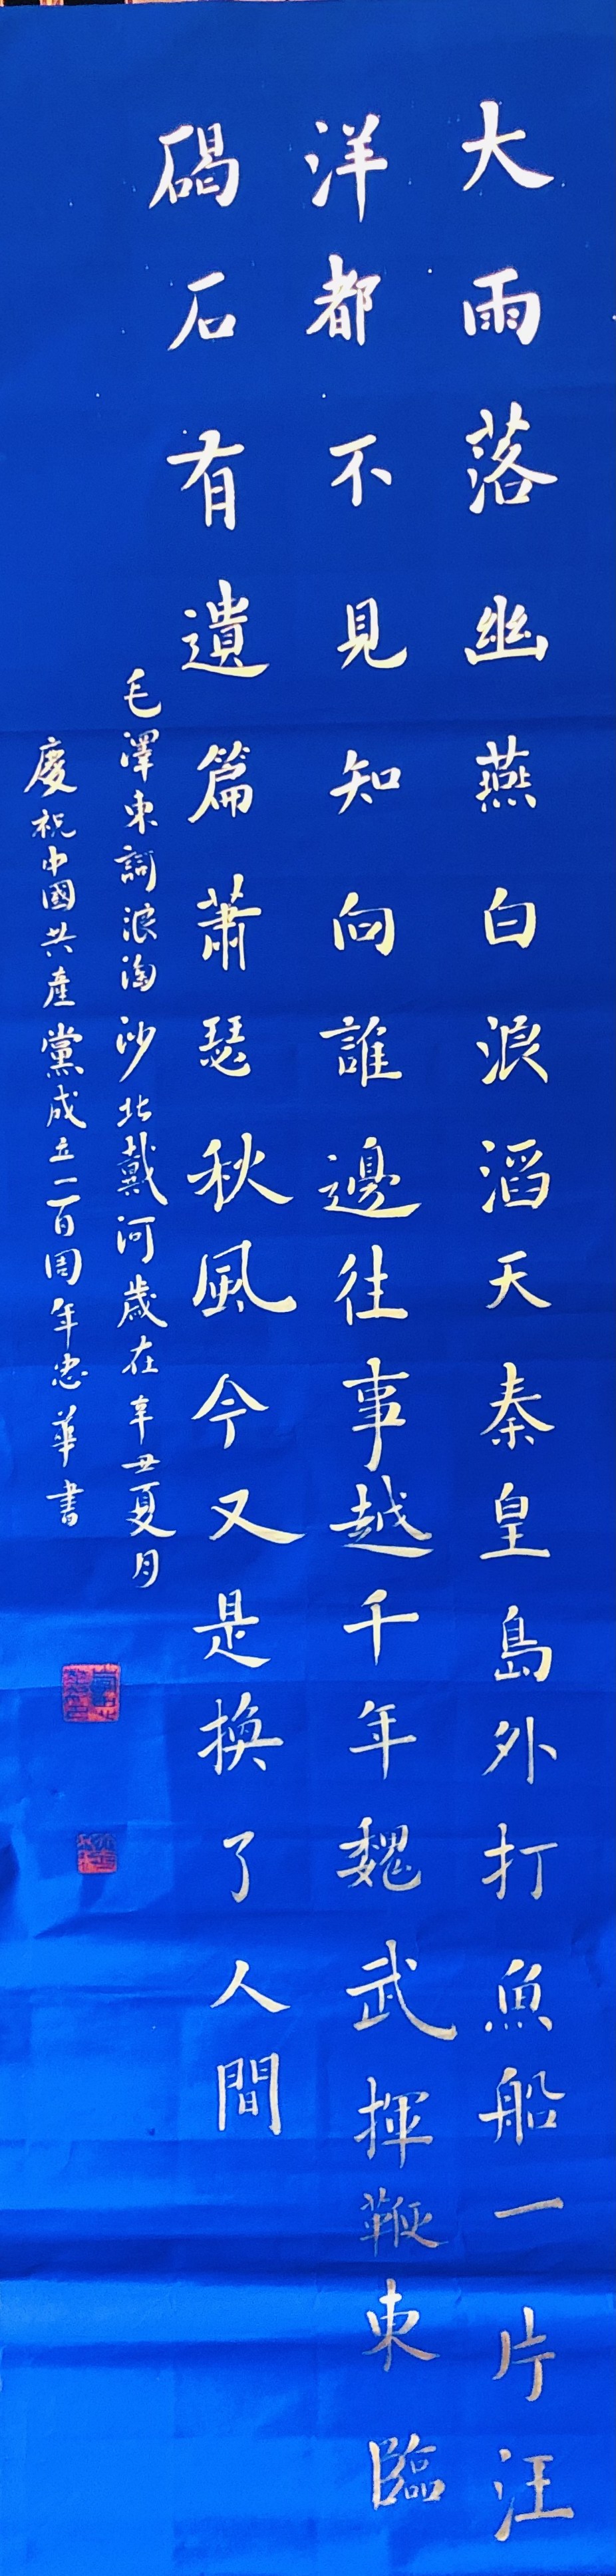 大雨落幽燕白浪滔天秦皇島外打魚船一片汪
洋都不見知向誰邊往事越千年魏武揮鞭東臨
碣石有遺篇蕭瑟秋風今又是換了人間
毛澤東詞浪淘沙北戴河歲在辛丑夏月
慶祝中國共產黨成立一百周年忠華書